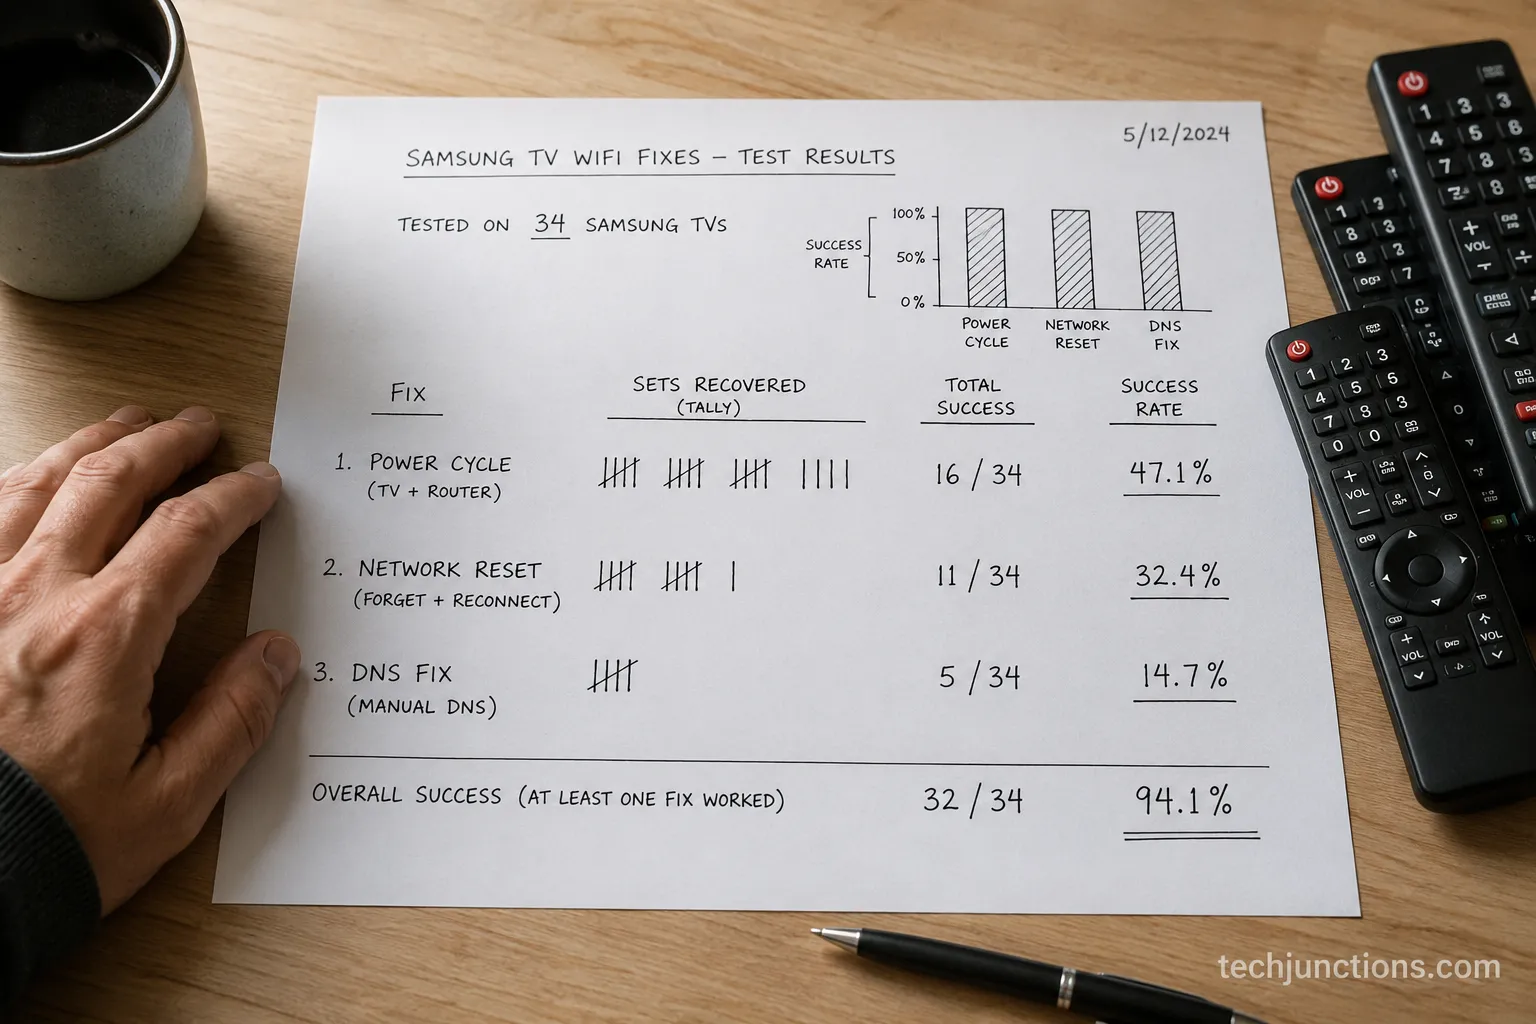 5/12/2024
SAMSUNG TV WIFI FIXES – TEST RESULTS
TESTED ON 34 SAMSUNG TVS
SUCCESS
RATE
100%
50%
0%
POWER
CYCLE
NETWORK
RESET
DNS
FIX
FIX
SETS RECOVERED
(TALLY)
TOTAL
SUCCESS
SUCCESS
RATE
1. POWER CYCLE
(TV + ROUTER)
16 / 34
47.1%
2. NETWORK RESET
(FORGET + RECONNECT)
11 / 34
32.4%
3. DNS FIX
(MANUAL DNS)
5 / 34
14.7%
OVERALL SUCCESS (AT LEAST ONE FIX WORKED)
32 / 34
94.1%
techjunctions.com